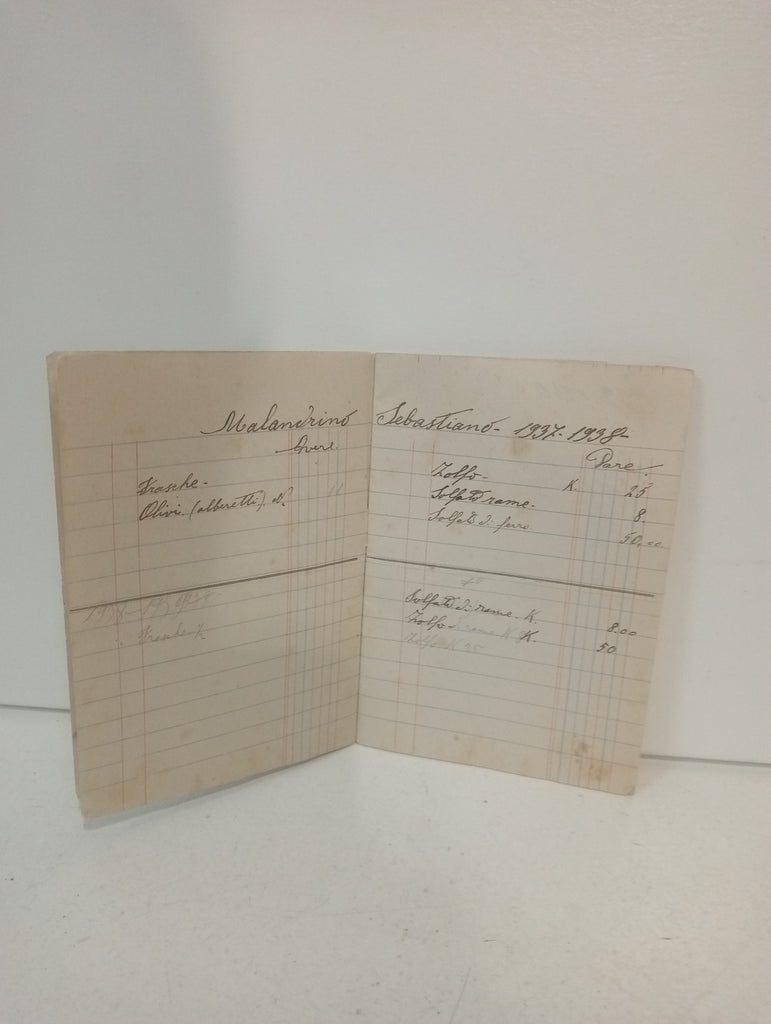 Malandrino Sebastiano - 1937-1938-
Avere
Frasche-
Olivi (alberetti) N°
11
Dare
Zolfo- K. 25
Solfato rame. 8.
Solfato di ferro 50,00
Frasche K
Solfato di rame. K. 8.00
Zolfo- K. 50
Zolfo K 25